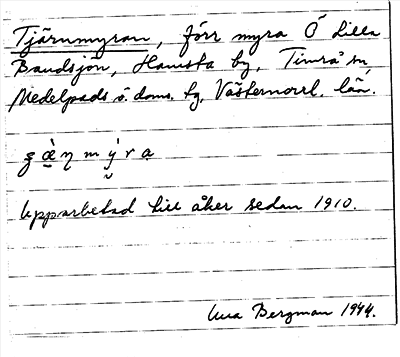 Tjärnmyran, förr myra Ö Lilla
Bandsjön, Hamsta by, Timrå sn,
Medelpads ö. doms. tg, Västernorrl. län.
ʒ æ̀ ŋ m ỳ r a
Upparbetad till åker sedan 1910.
Bergman 1944.